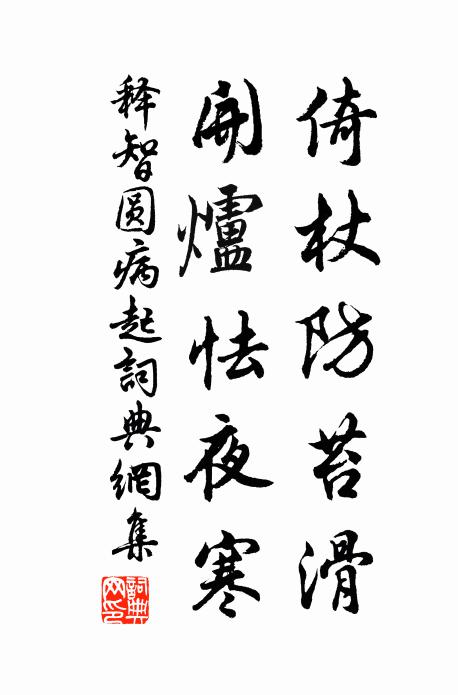 倚杖防苔滑
開爐怯夜寒
释智圆病起詞典網集
詞典網印